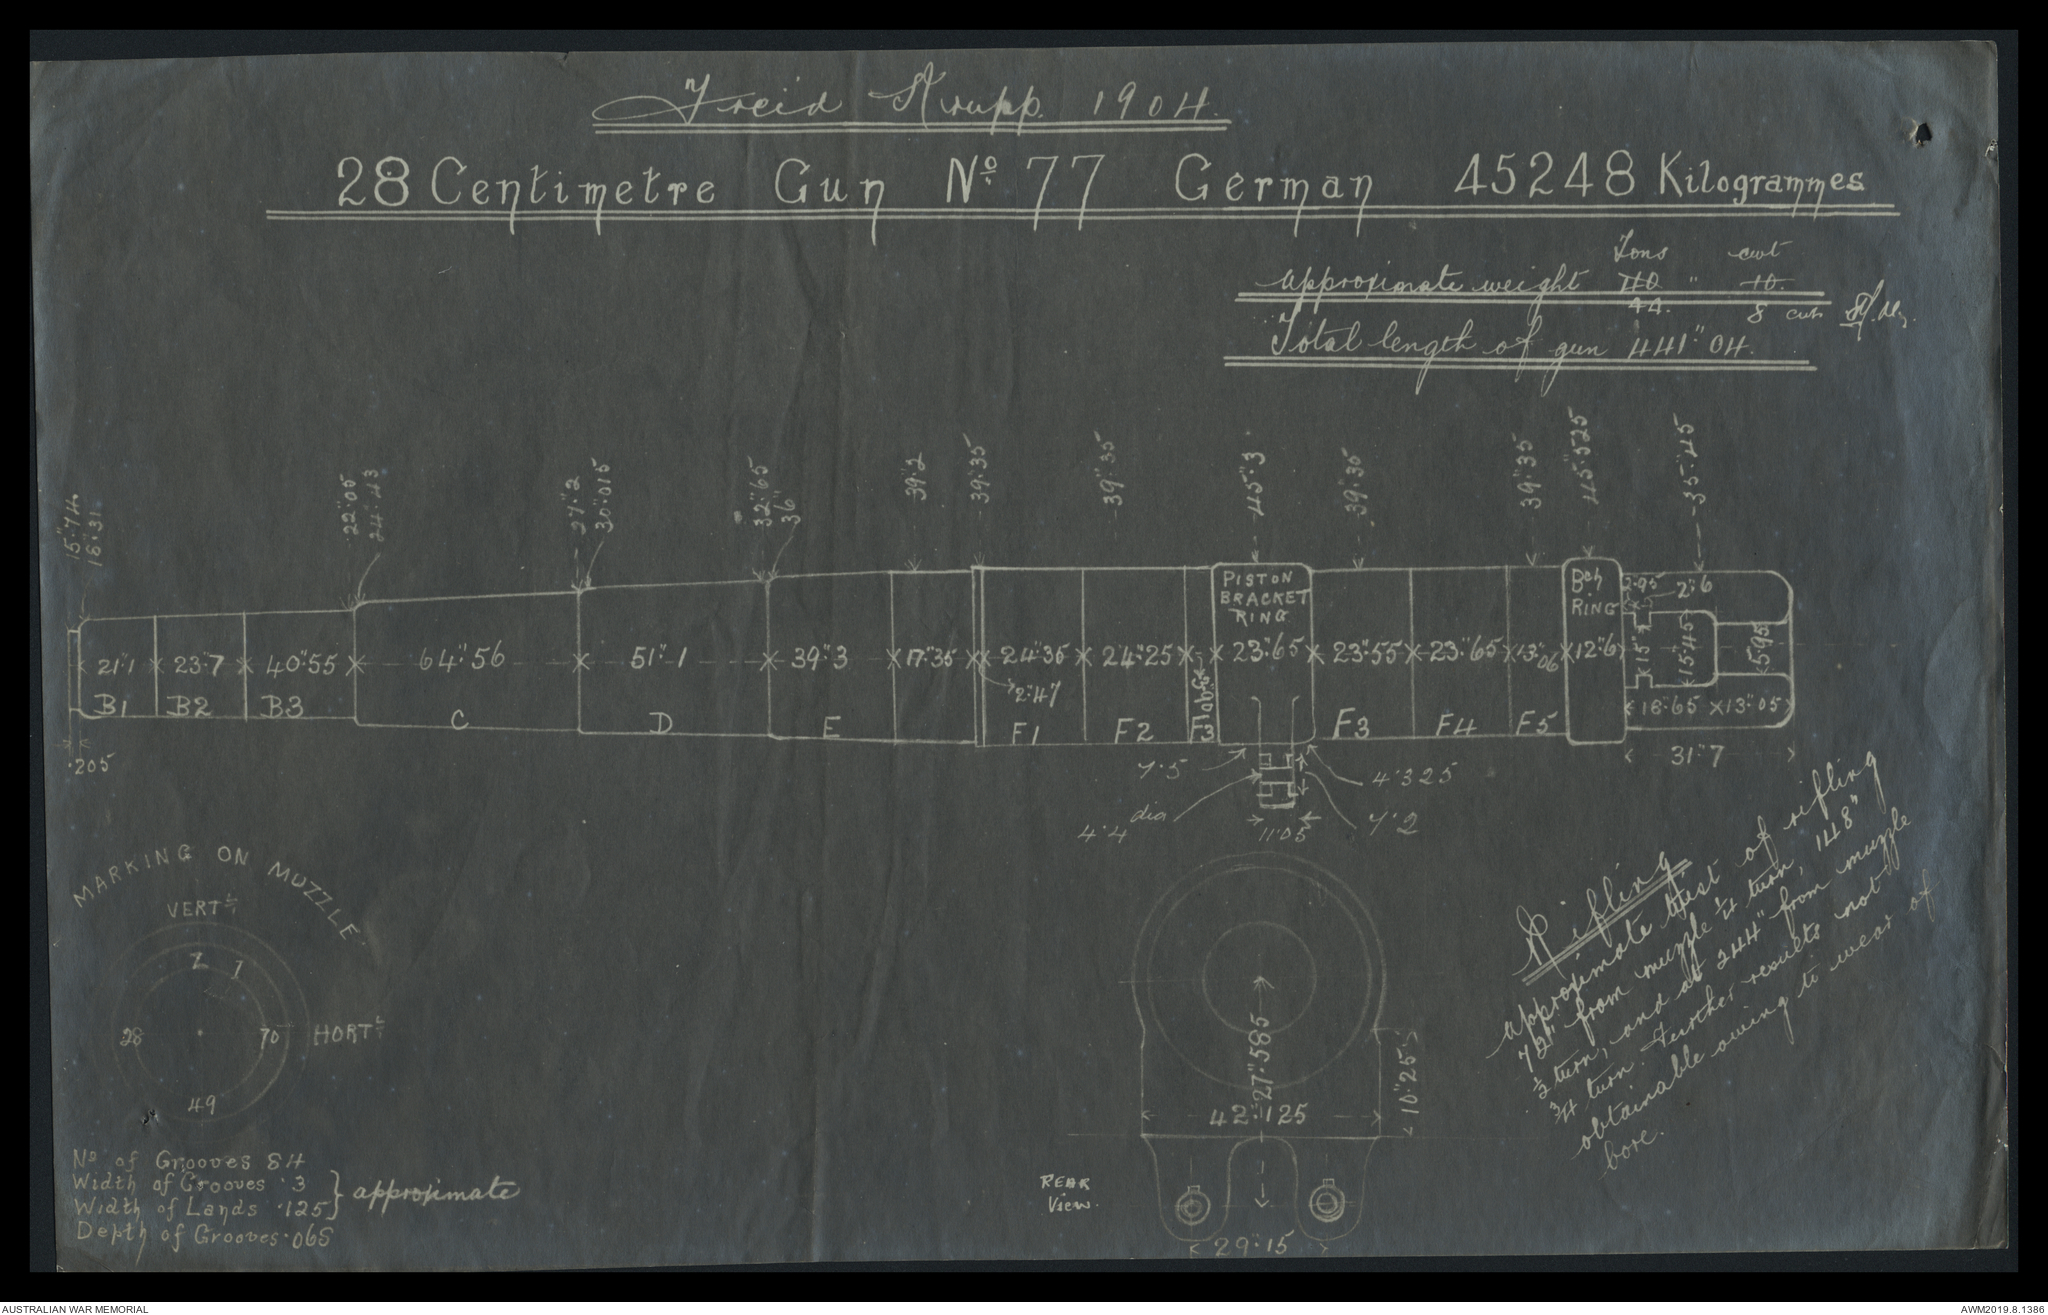 Freid Krupp. 1904.
28 Centimetre Gun No 77 German 45248 Kilogrammes
Tons cwt
approximate weight 40 " 10.
44. 8 cwts
Total length of gun 441"04.
15"74
16"31
22"05
24"43
27"2
30"015
32"65
36"
39"2
39"35
39"35
45"3
39"35
39"35
45"525
35"45
PISTON
BRACKET
RING
Bch
RING
2"95
2"6
21"1
23"7
40"55
64"56
51"1
39"3
17"35
24"35
24"25
23"65
23"55
23"65
13"06
12"6
15"
15"45
5"95
2"47
B1
B2
B3
C
D
E
F1
F2
F3
F4
F5
18"65
13"05
31"7
·205
7"5
4"325
4"4 dia
11"05
7"2
MARKING ON MUZZLE
VERTL
7
28
70
HORTL
49
No of Grooves 84
Width of Grooves ·3
Width of Lands ·125
approximate
Depth of Grooves ·065
27"585
42"125
10"25
REAR
View.
29"15
Rifling
approximate twist of rifling
72" from muzzle ¼ turn, 148"
½ turn, and at 244" from muzzle
¾ turn. Further results not
obtainable owing to wear of
bore.
AUSTRALIAN WAR MEMORIAL
AWM2019.8.1386